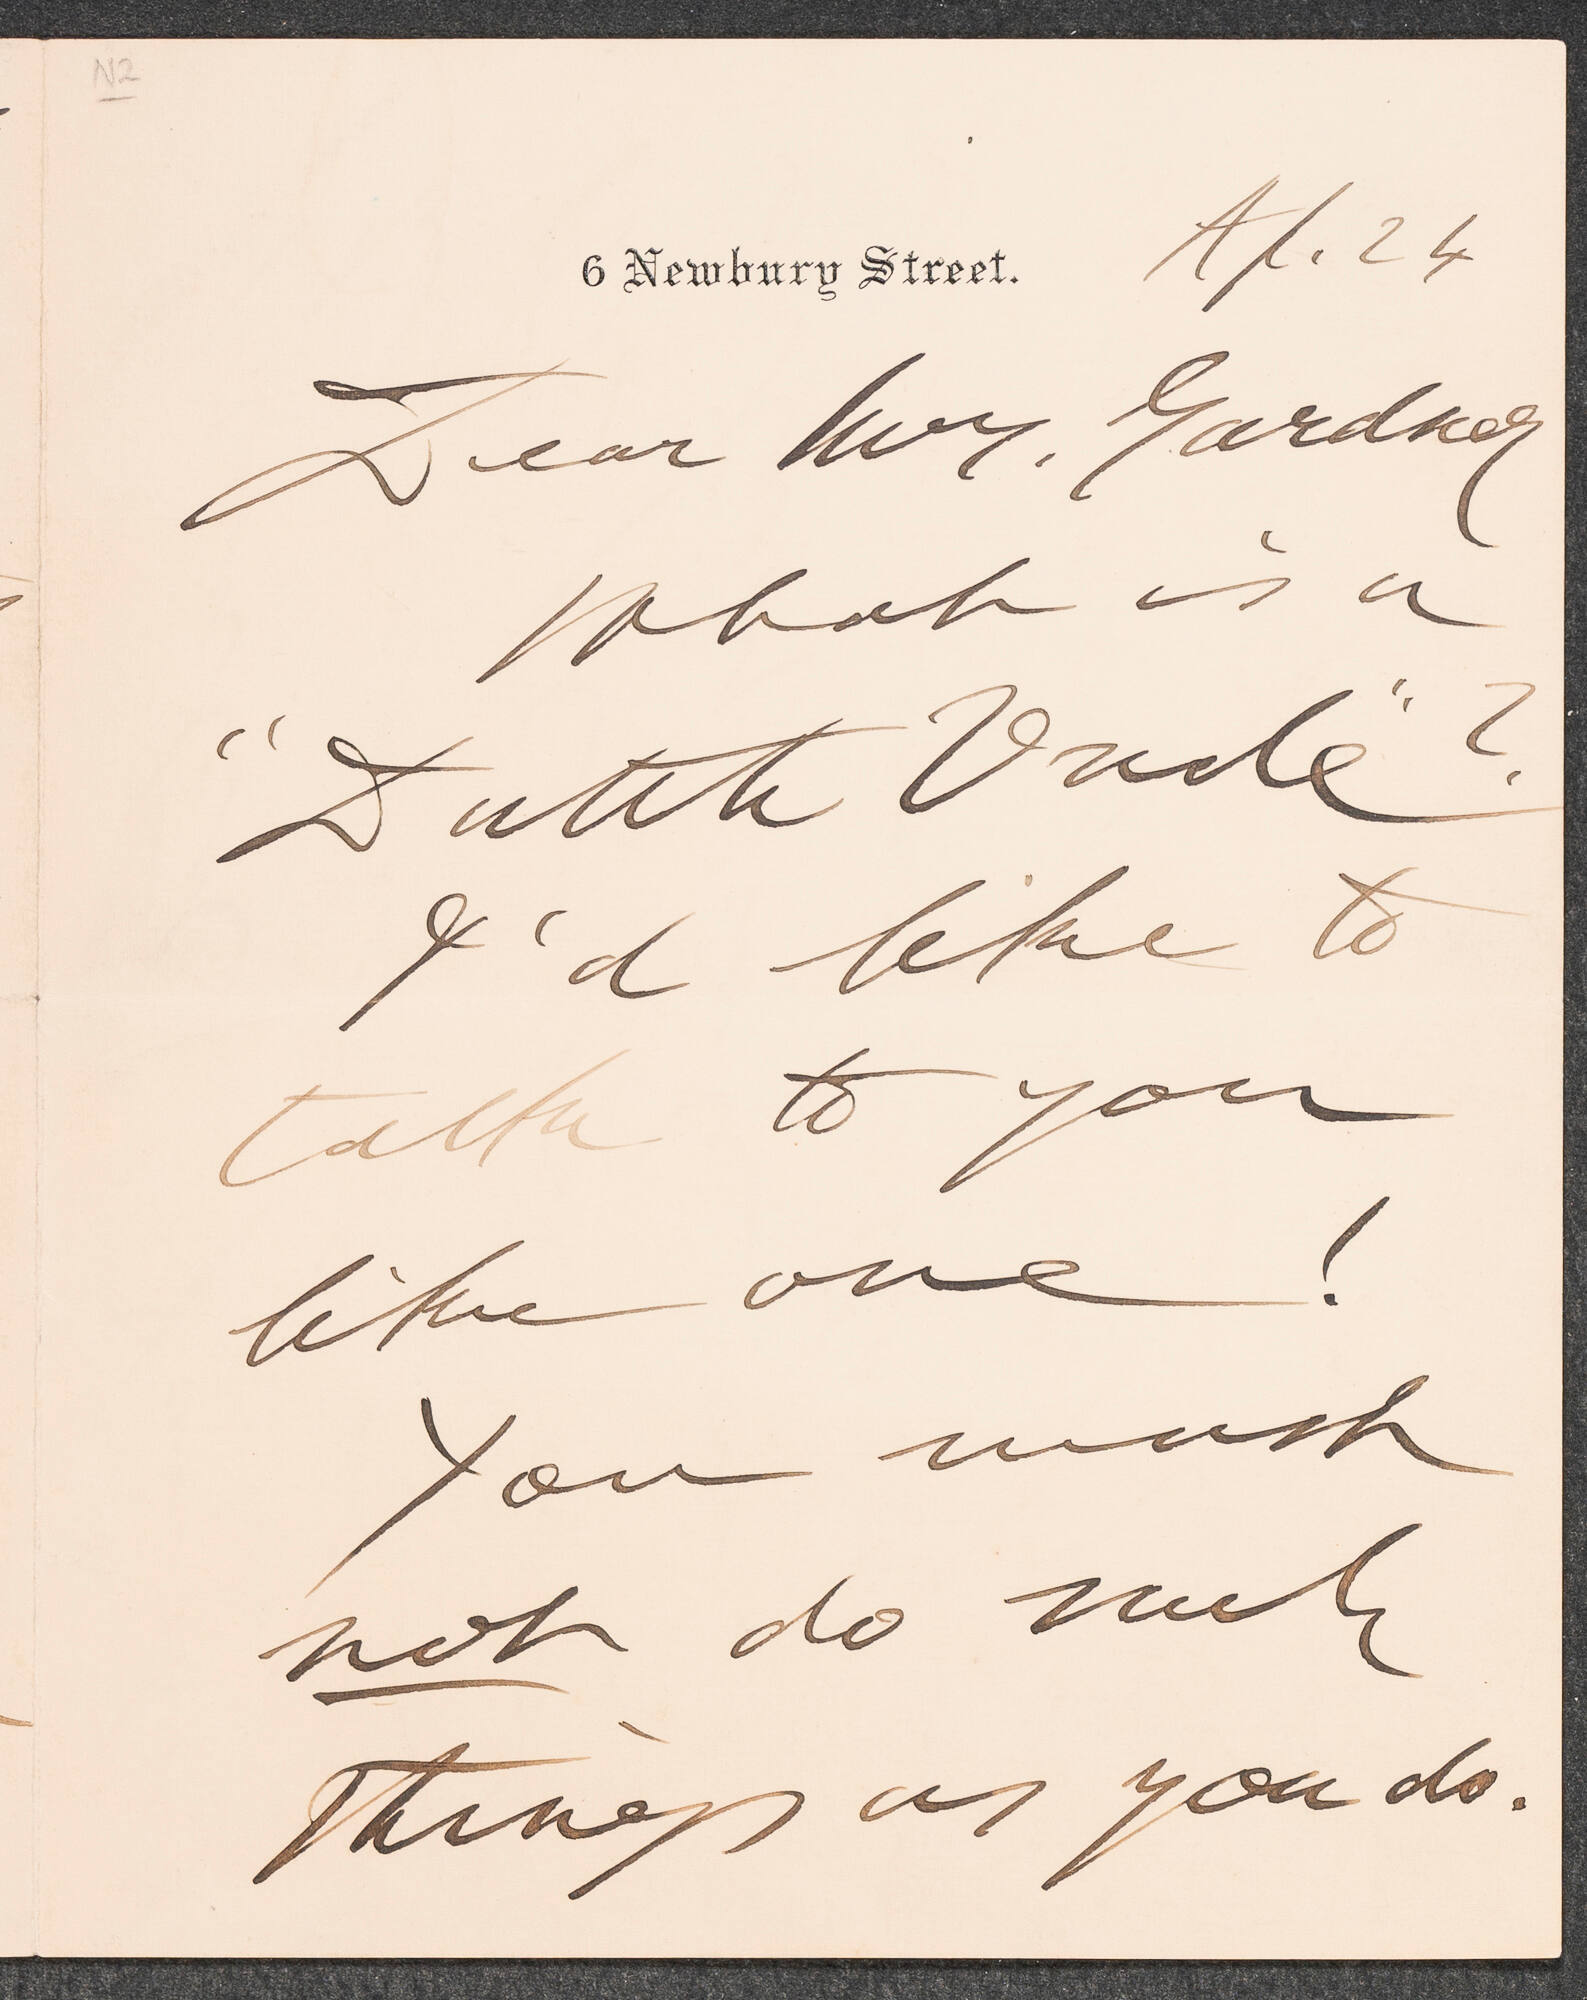 N2
Ap. 24
6 Newbury Street.
Dear Mrs. Gardner
What is a
"Dutch Uncle"?
I'd like to
talk to you
like one!
You must
not do such
things as you do.